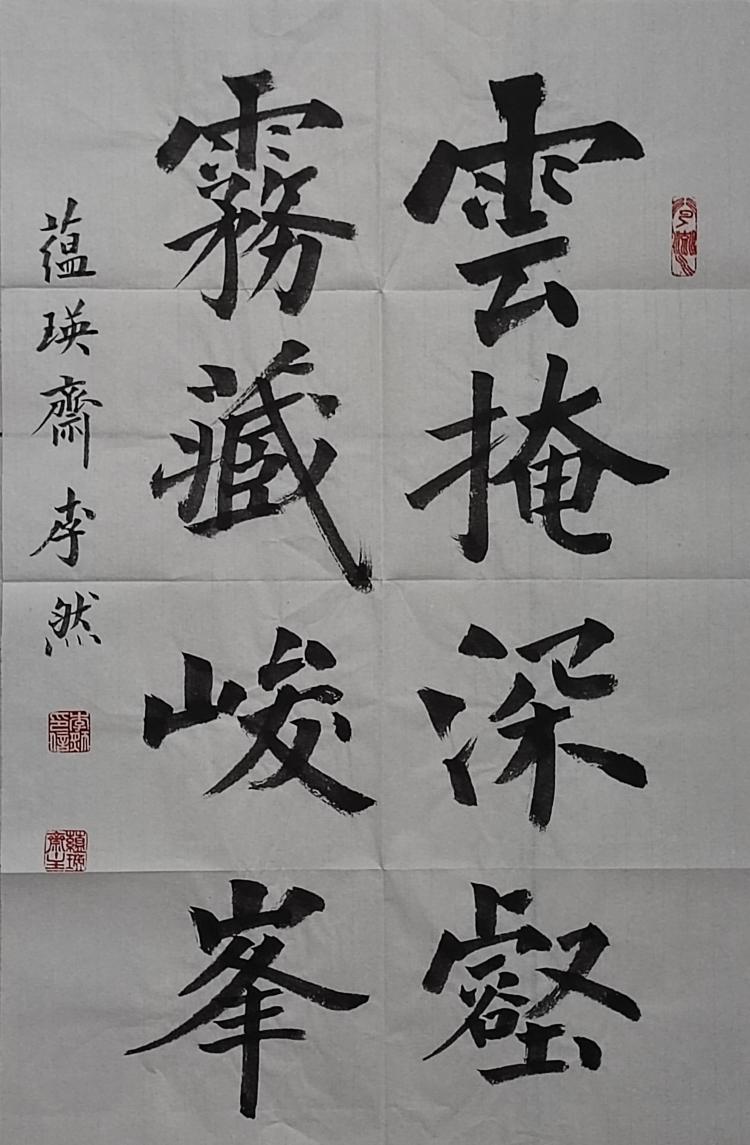 雲掩深壑
霧藏峻峯
蘊瑛齋李然